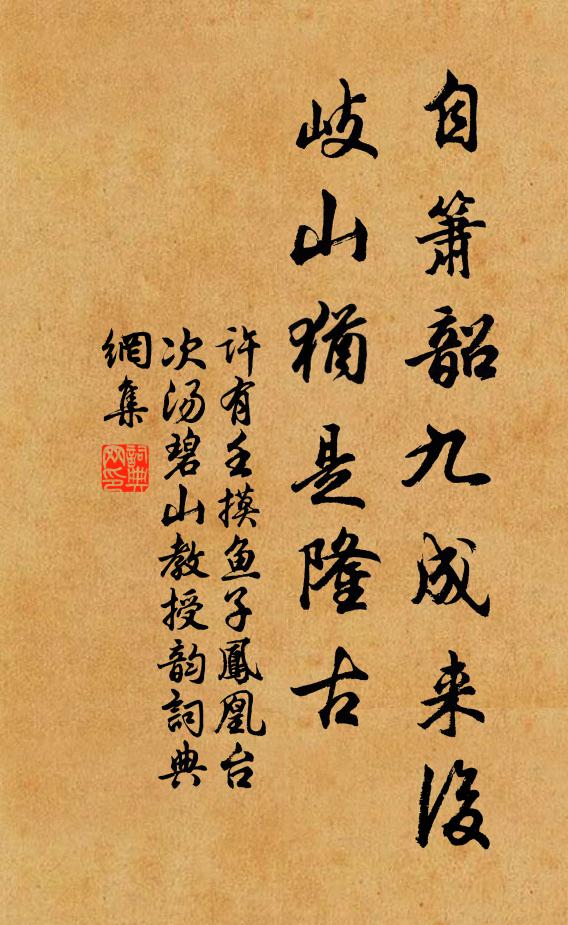 自箫韶九成来后
岐山犹是隆古
许有壬摸鱼子鳳凰台
次汤碧山教授韵詞典
網集
詞典
网印